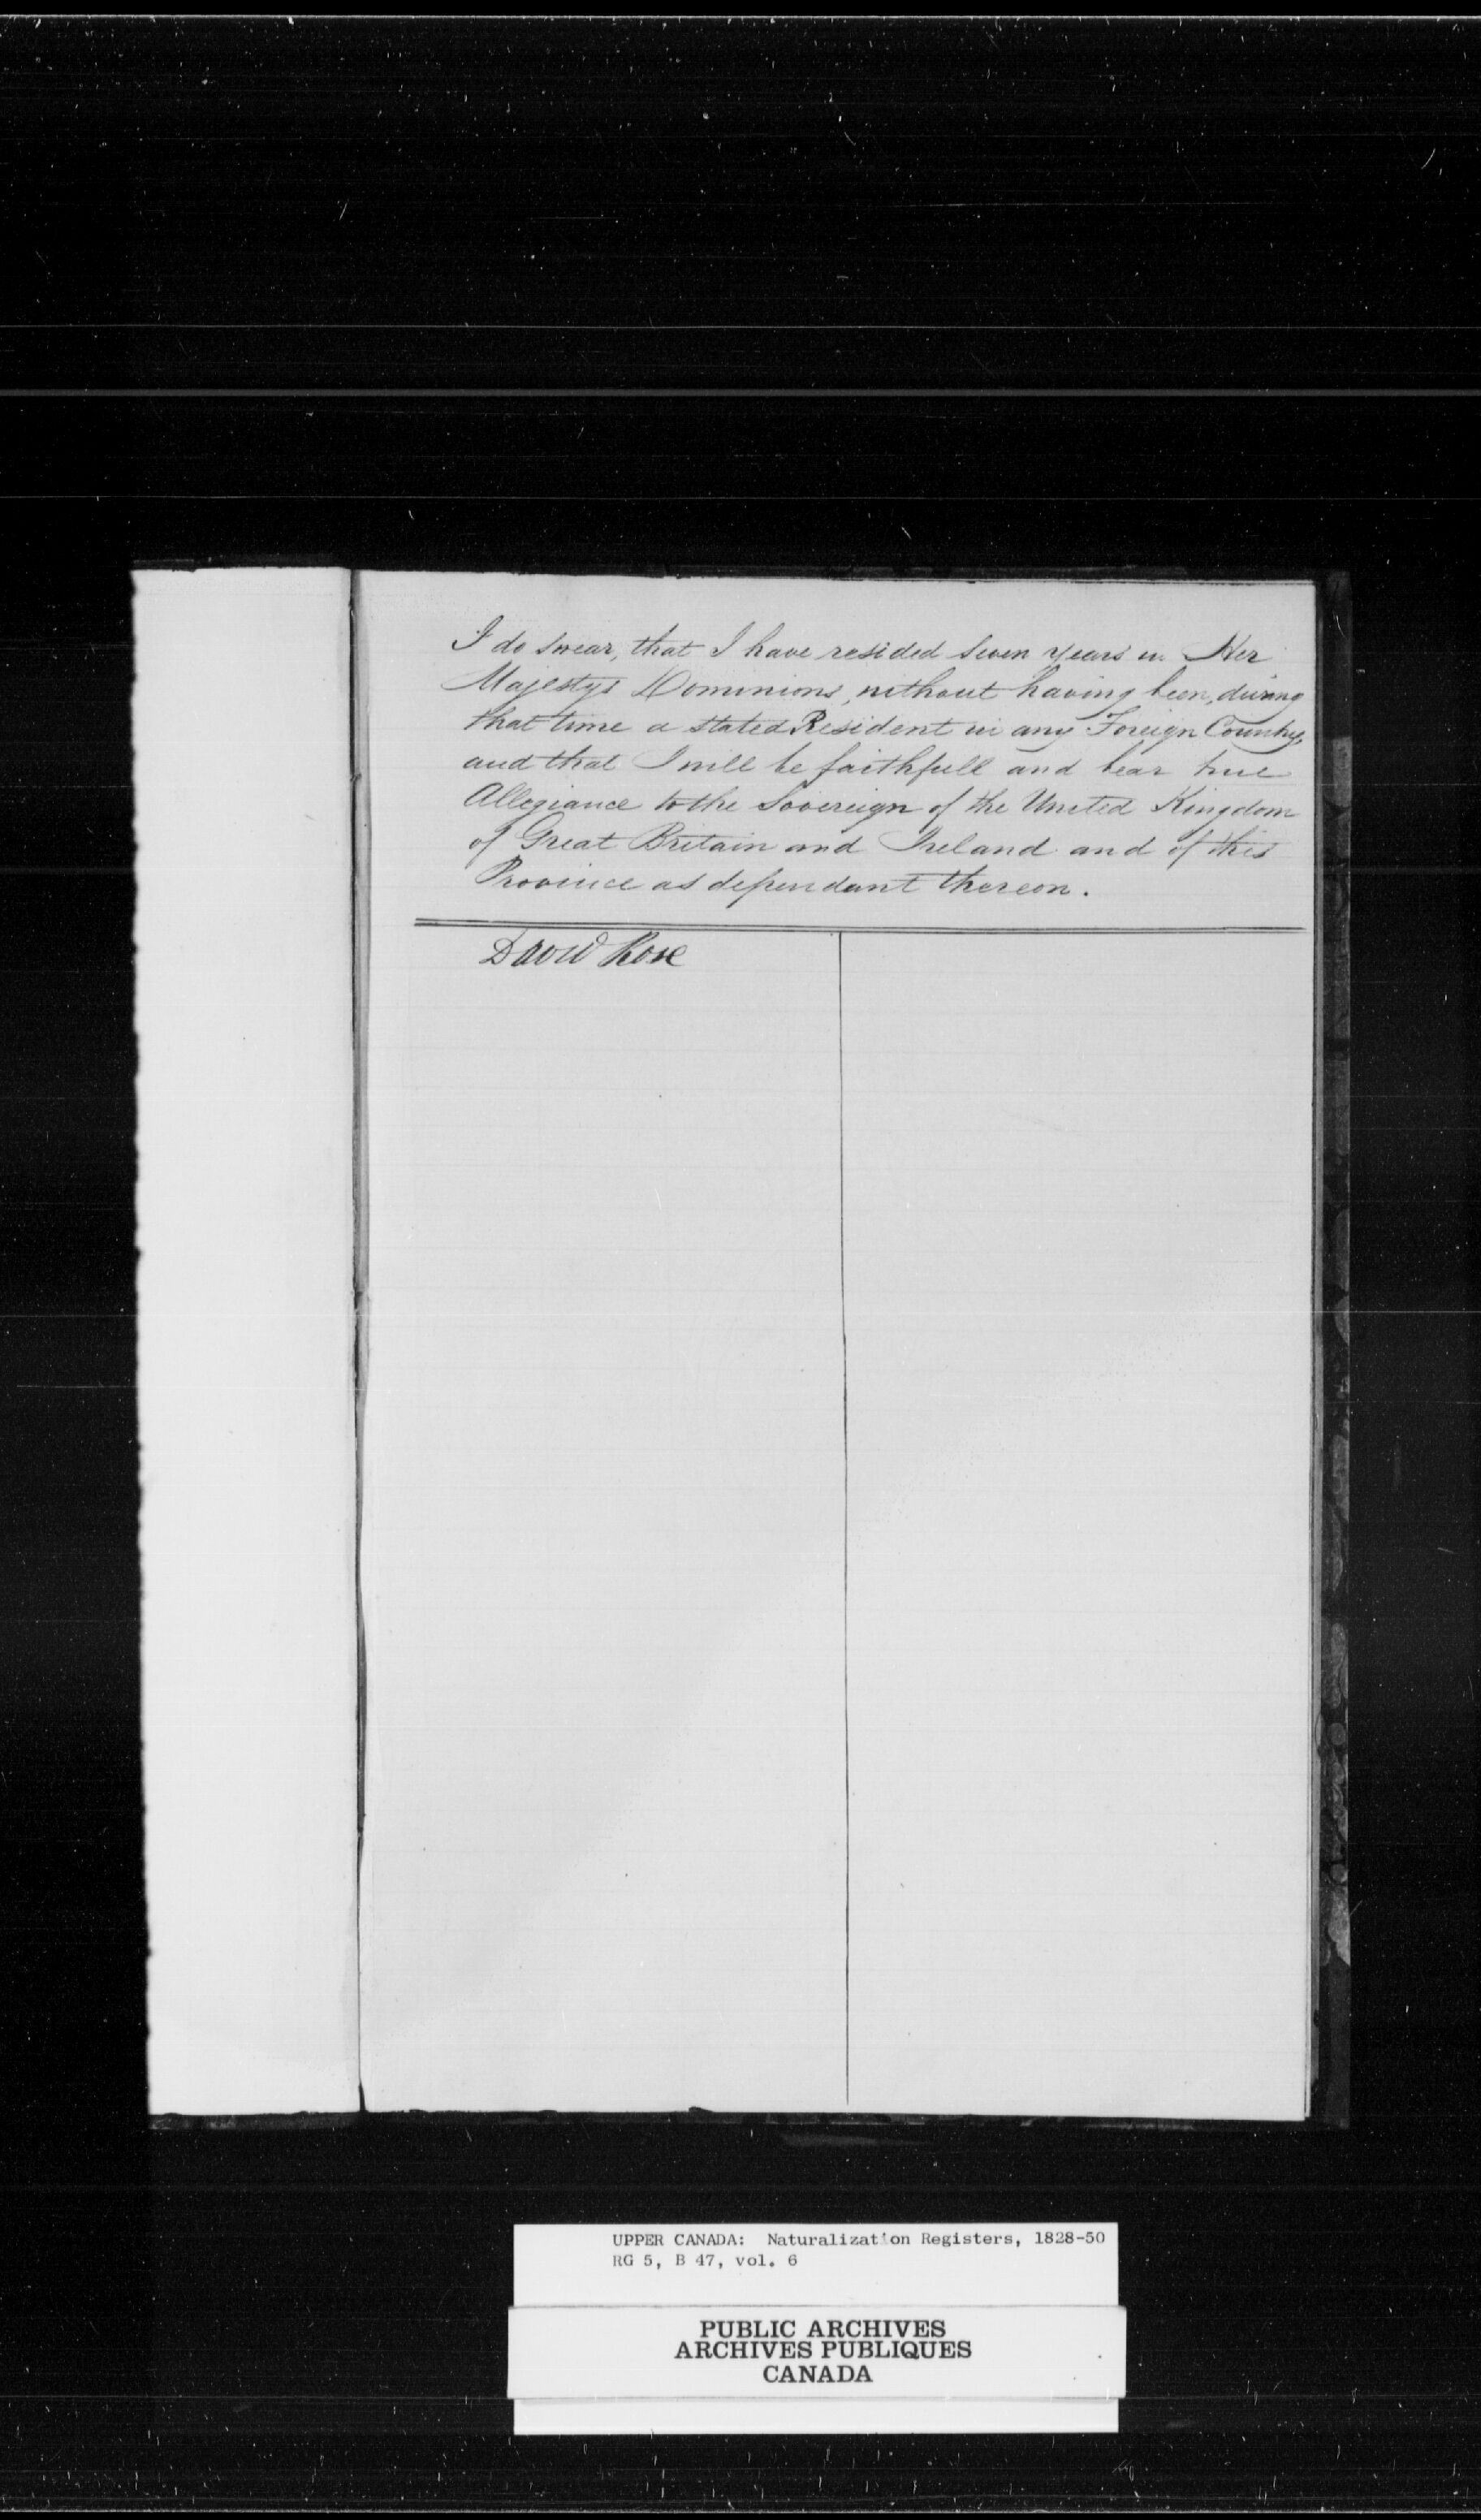 I do swear, that I have resided seven years in Her
Majestys Dominions, without having been, during
that time a stated Resident in any Foreign Country,
and that I will be faithfull and bear true
Allegiance to the Sovereign of the United Kingdom
of Great Britain and Ireland and of this
Province as dependant thereon.
David Rose
UPPER CANADA: Naturalization Registers, 1828-50
RG 5, B 47, vol. 6
PUBLIC ARCHIVES
ARCHIVES PUBLIQUES
CANADA